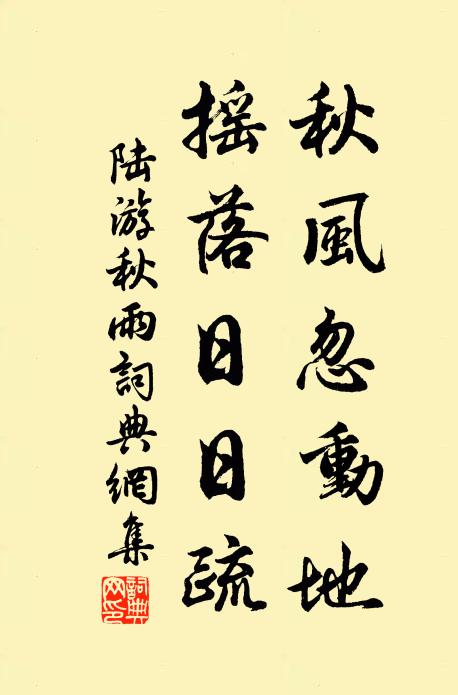 秋風忽動地
搖落日日疏
陆游秋雨詞典網集
詞典